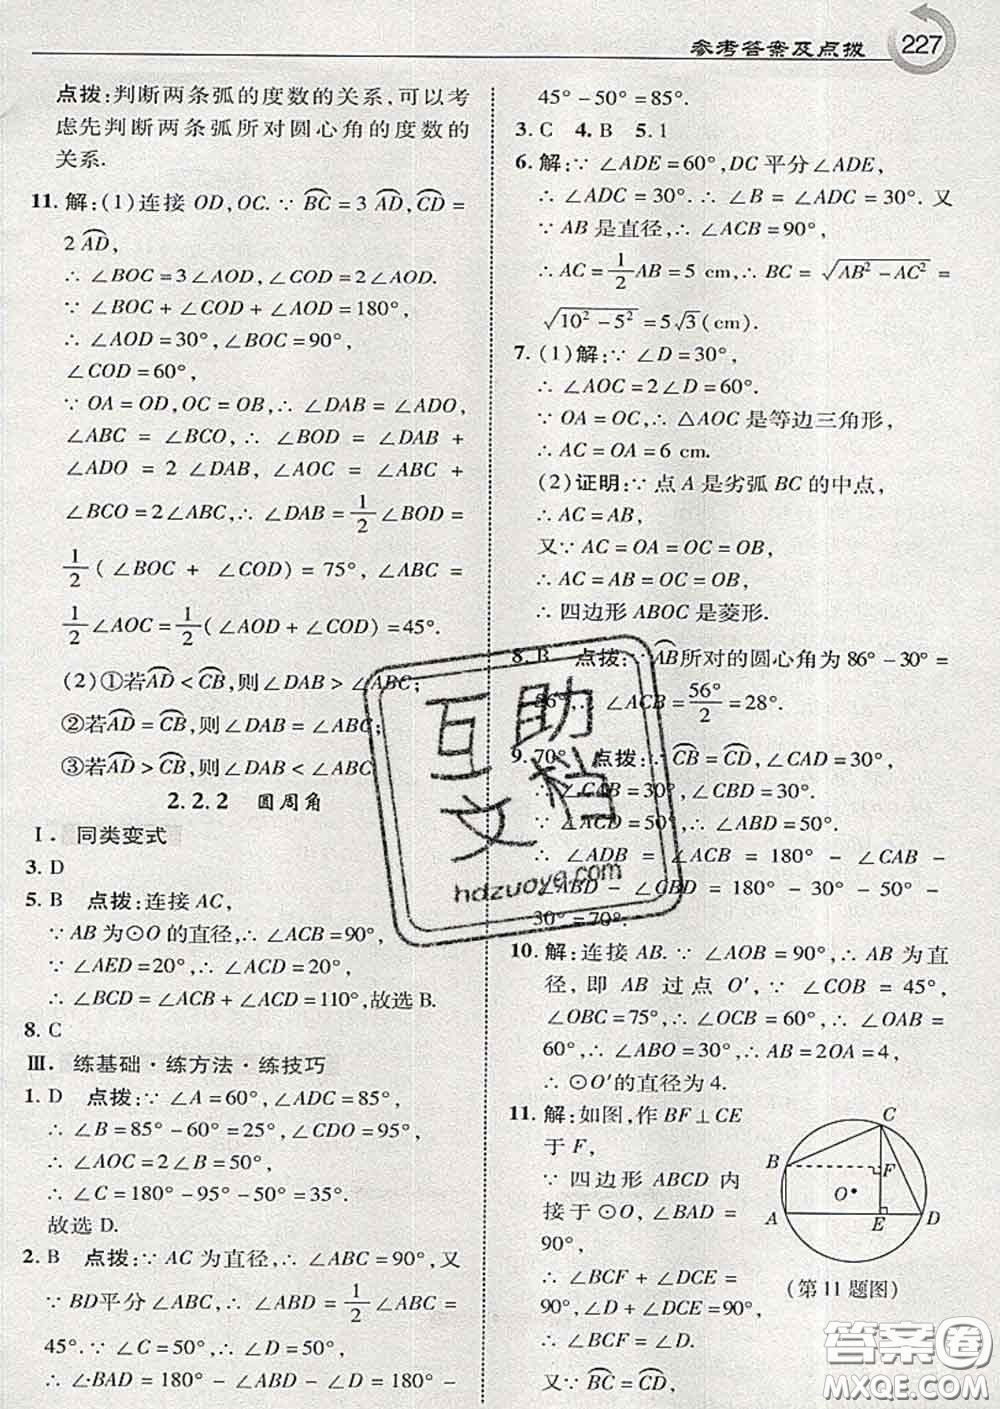 参考答案及点拨
227
点拨:判断两条弧的度数的关系,可以考
虑先判断两条弧所对圆心角的度数的
关系.
11. 解:(1)连接 OD,OC.∵ BC⌒=3 AD⌒,CD⌒=
2 AD⌒,
∴ ∠BOC=3∠AOD,∠COD=2∠AOD.
∵ ∠BOC+∠COD+∠AOD=180°,
∴ ∠AOD=30°,∠BOC=90°,
∠COD=60°.
∵ OA=OD,OC=OB,∴ ∠DAB=∠ADO,
∠ABC=∠BCO,∴ ∠BOD=∠DAB+
∠ADO=2∠DAB,∠AOC=∠ABC+
∠BCO=2∠ABC,∴ ∠DAB=1/2∠BOD=
1/2(∠BOC+∠COD)=75°,∠ABC=
1/2∠AOC=1/2(∠AOD+∠COD)=45°.
(2)①若AD⌒<CB⌒,则∠DAB>∠ABC;
②若AD⌒=CB⌒,则∠DAB=∠ABC;
③若AD⌒>CB⌒,则∠DAB<∠ABC.
2.2.2 圆周角
Ⅰ. 同类变式
3. D
5. B 点拨:连接 AC,
∵ AB 为⊙O 的直径,∴ ∠ACB=90°,
∵ ∠AED=20°,∴ ∠ACD=20°,
∴ ∠BCD=∠ACB+∠ACD=110°,故选 B.
8. C
Ⅲ. 练基础·练方法·练技巧
1. D 点拨:∵ ∠A=60°,∠ADC=85°,
∴ ∠B=85°-60°=25°,∠CDO=95°,
∴ ∠AOC=2∠B=50°,
∴ ∠C=180°-95°-50°=35°.
故选 D.
2. B 点拨:∵ AC 为直径,∴ ∠ABC=90°,又
∵ BD平分∠ABC,∴ ∠ABD=1/2∠ABC=
45°.∵ ∠C=50°,∴ ∠D=50°,
∴ ∠BAD=180°-∠D-∠ABD=180°-
45°-50°=85°.
3. C 4. B 5. 1
6. 解:∵ ∠ADE=60°,DC 平分∠ADE,
∴ ∠ADC=30°.∴ ∠B=∠ADC=30°.又
∵ AB 是直径,∴ ∠ACB=90°,
∴ AC=1/2AB=5 cm,∴ BC=√(AB²-AC²)=
√(10²-5²)=5√3(cm).
7. (1)解:∵ ∠D=30°,
∴ ∠AOC=2∠D=60°.
∵ OA=OC,∴ △AOC 是等边三角形,
∴ AC=OA=6 cm.
(2)证明:∵ 点 A 是劣弧 BC 的中点,
∴ AC=AB,
又∵ AC=OA=OC=OB,
∴ AC=AB=OC=OB,
∴ 四边形 ABOC 是菱形.
8. B 点拨:∵AB⌒所对的圆心角为 86°-30°=
56°,∴ ∠ACB=56°/2=28°.
9. 70° 点拨:∵CB⌒=CD⌒,∠CAD=30°,
∴ ∠CAB=30°,∠CBD=30°.
∵ ∠ACD=50°,∴ ∠ABD=50°.
∴ ∠ADB=∠ACB=180°-∠CAB-
∠ABD-∠CBD=180°-30°-50°-
30°=70°.
10. 解:连接 AB.∵ ∠AOB=90°,∴ AB 为直
径,即 AB 过点 O′,∵ ∠COB=45°,
∠OBC=75°,∴ ∠OCB=60°,∴ ∠OAB=
60°,∴ ∠ABO=30°,∴ AB=2OA=4,
∴ ⊙O′的直径为 4.
11. 解:如图,作 BF⊥CE
于 F,
∵ 四边形 ABCD 内
接于⊙O,∠BAD=
90°,
∴ ∠BCF+∠DCE=
90°,∠D+∠DCE=90°,
∴ ∠BCF=∠D.
又∵ BC⌒=CD⌒,
C
B
F
O
A
E
D
(第 11 题图)
互助文档
hdzuoye.com
答案圈
MXQE.COM